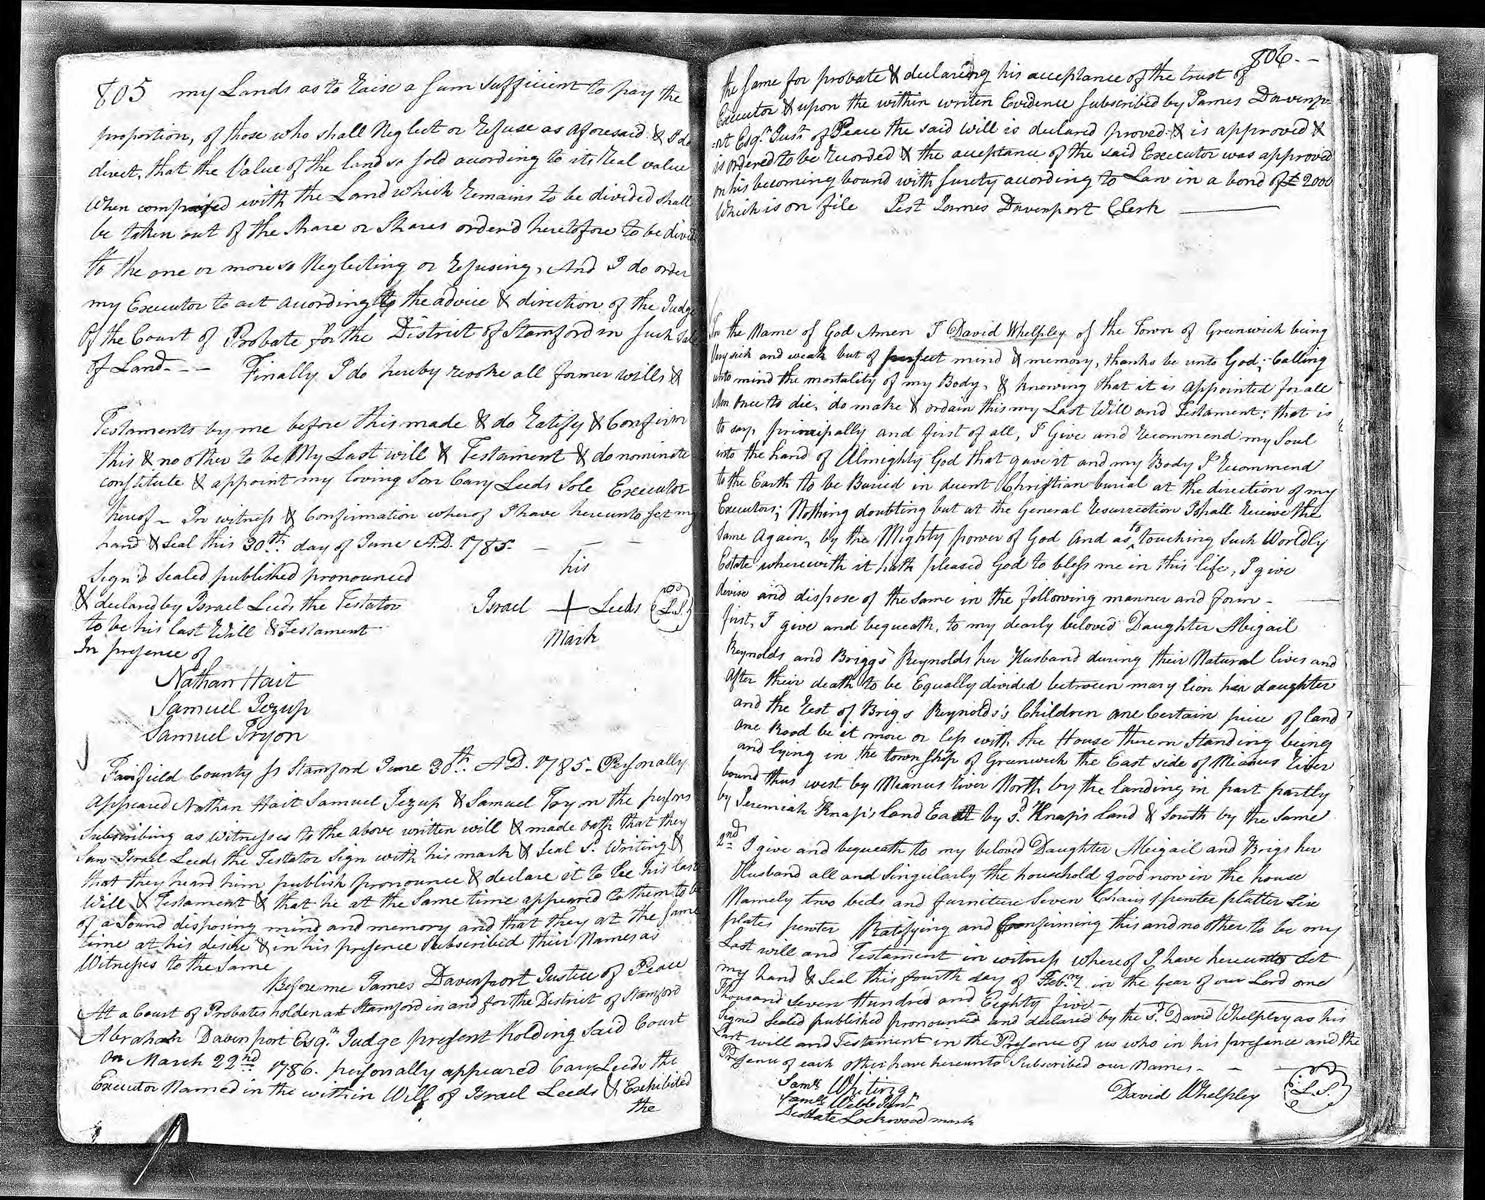 805 my Lands as to raise a Sum sufficient to pay the
proportion, of those who shall Neglect or refuse as aforesaid & I do
direct, that the Value of the land so sold acording to its real value
when compared with the Land which remains to be divided shall
be taken out of the share or shares order'd heretofore to be divid
to the one or more so Neglecting or refusing, And I do order
my Executor to act acording to the advice & direction of the Judge
Of the Court of Probate for the District of Stamford in such sale
of Land - - - Finally I do hereby revoke all former wills &
Testaments by me before this made & do Ratify & Confirm
this & no other to be My Last will & Testament & do nominate
constitute & appoint my loving Son Cary Leeds Sole Executor
hereof - In witness & Confirmation wherof I have hereunto set my
hand & Seal this 30th day of June A.D. 1785. - -
Sign'd Sealed published pronounced his
& declared by Israel Leeds the Testator Israel + Leeds (L.S.)
to be his last Will & Testament Mark
In presence of
Nathan Hait
Samuel Jezup
Samuel Tryon
Fairfield County Ss Stamford June 30th A.D. 1785. Personally
Appeared Nathan Hait Samuel Jezup & Samuel Tryon the persons
Subscribing as witnesses to the above written will & made oath that they
Saw Israel Leeds the Testator Sign with his mark & Seal Sd. Writing &
that they heard him publish pronounce & declare it to be his Last
Will & Testament & that he at the Same time appeared to them to be
of a Sound disposing mind and memory and that they at the same
time at his desire & in his presence Subscribed their Names as
Witnesses to the Same
Before me James Davenport Justice of Peace
At a Court of Probates holden at Stamford in and for the District of Stamford
Abraham Davenport Esqr. Judge present holding Said Court
On March 22nd 1786. personally appeared Cary Leeds the
Executor Named in the within Will of Israel Leeds & Exhibited
the
806. - -
the Same for probate & declaring his acceptance of the trust of
Executor & upon the within writen Evidence Subscribed by James Davenp-
-ort Esqr. Just. of Peace the said will is declared proved & is approved &
is ordered to be recorded & the acceptance of the said Executor was approved
on his becoming bound with surety acording to Law in a bond of £ 2000
Which is on file Test James Davenport Clerk
In the Name of God Amen I David Whelpley of the Town of Greenwich being
Very sick and weak but of perfect mind & memory, thanks be unto God; Calling
unto mind the mortality of my Body, & knowing that it is appointed for all
Men once to die, do make & ordain this my Last Will and Testament; that is
to say, principally and first of all, I Give and recommend my Soul
into the hand of Almighty God that gave it and my Body I recommend
to the Earth to be Buried in decent Christian burial at the direction of my
Executors; Nothing doubting but at the General resurrection I shall receive the
Same Again, by the Mighty power of God and as to touching such Worldly
Estate wherewith it hath pleased God to bless me in this life, I give
devise and dispose of the same in the following manner and form -
first, I give and bequeath, to my dearly beloved Daughter Abigail
Reynolds and Briggs Reynolds her Husband during their Natural lives and
After their death to be Equally divided between mary lion her daughter
and the rest of Brigs Reynolds's Children one Certain piece of land
one Rood be it more or less with the House theron Standing being
and lying in the township of Greenwich the East side of Mianus River
bound thus west by Mianus River North by the landing in part partly
by Jeremiah Knap's land East by sd. Knap's land & South by the same
2nd I give and bequeath to my beloved Daughter Abigail and Brigs her
Husband all and singularly the household good now in the house
Namely two beds and furniture Seven Chairs 1 pewter platter Six
plates pewter Ratifying and Confirming this and no other to be my
Last will and Testament in witness wherof I have hereunto Set
my hand & Seal this fourth day of Feby. in the year of our Lord one
Thousand Seven Hundred and Eighty five -
Signd Sealed published pronounced and declared by the sd. David Whelpley as his
Last will and Testament in the Presence of us who in his presence and the
Presence of each other have hereunto Subscribed our Names - - -
Saml. Whiting
Saml. David Whelpley (L.S.)
Lockwood mark